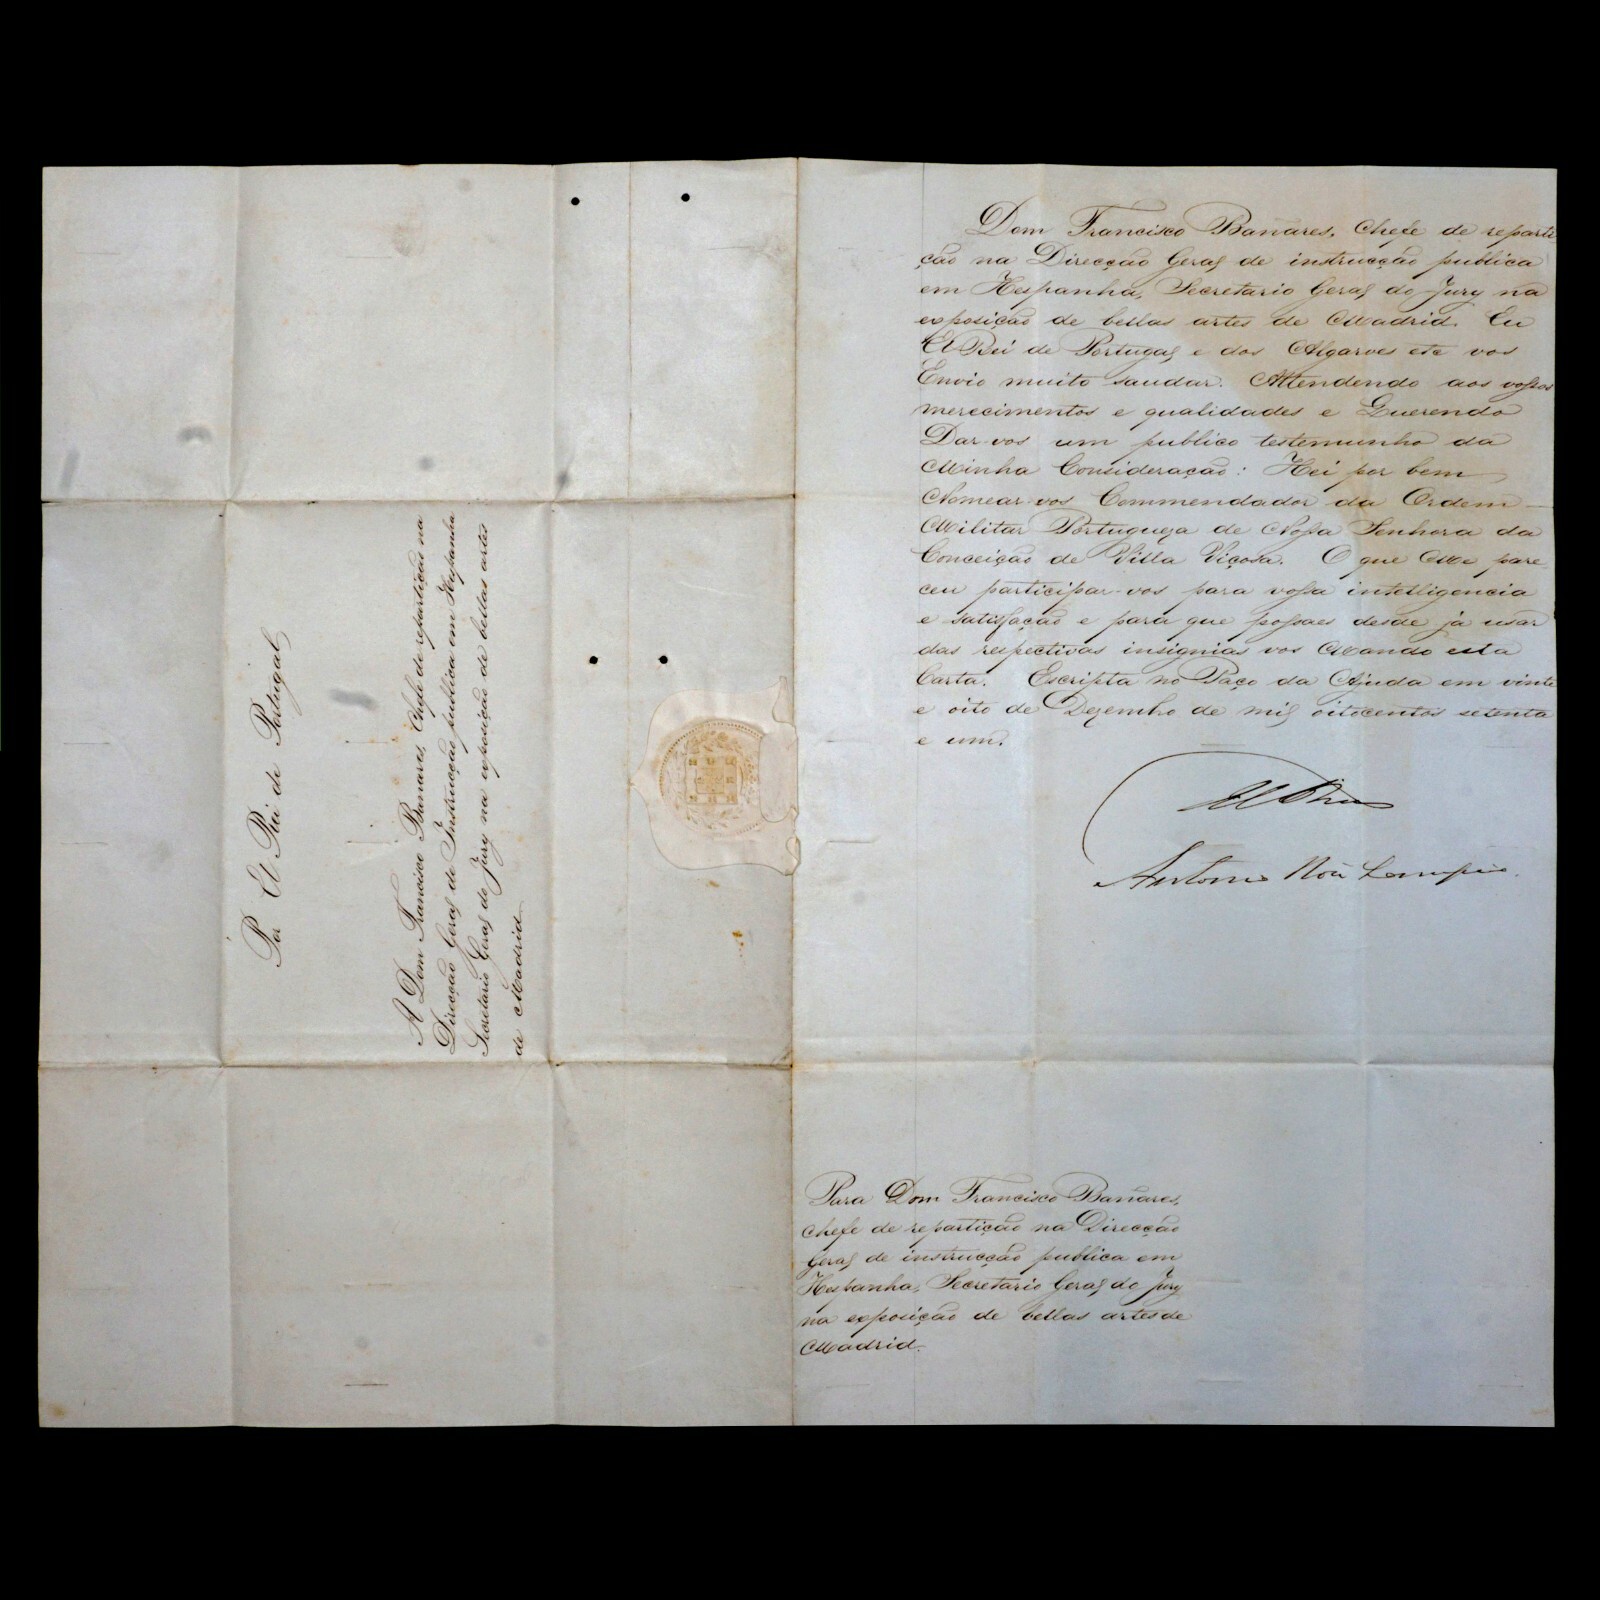 Por El Rei de Portugal
A Dom Francisco Banares, Chefe de repartição na
Direcção Geral de Instrucção publica em Hespanha
Secretario Geral do Jury na exposição de bellas artes
de Madrid
Dom Francisco Banares, Chefe de reparti
ção na Direcção Geral de instrucção publica
em Hespanha, Secretario Geral do Jury na
exposição de bellas artes de Madrid. Eu
El Rei de Portugal e dos Algarves etc vos
Envio muito saudar. Attendendo aos vossos
merecimentos e qualidades e Querendo
Dar-vos um publico testemunho da
Minha Consideração: Hei por bem
Nomear-vos Commendador da Ordem
Militar Portugueza de Nossa Senhora da
Conceição de Villa Viçosa. O que Me pare-
ceu participar-vos para vossa intelligencia
e satisfação e para que possaes desde já usar
das respectivas insignias vos Mando esta
Carta. Escripta no Paço da Ajuda em vinte
e oito de Dezembro de mil oitocentos setenta
e um.
Antonio
Para Dom Francisco Banares,
Chefe de repartição na Direcção
Geral de instrucção publica em
Hespanha, Secretario Geral do Jury
na exposição de bellas artes de
Madrid.